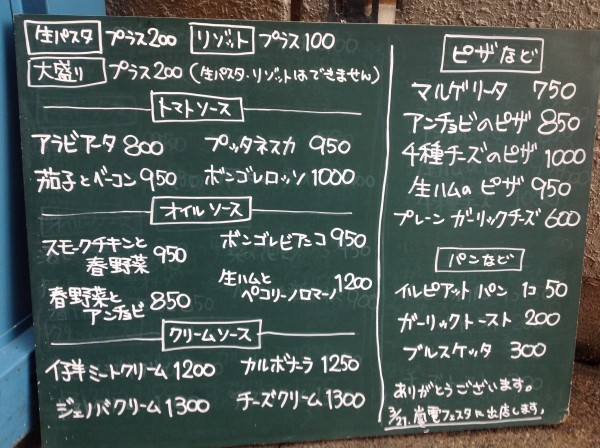 生パスタ プラス200 リゾット プラス100
大盛り プラス200 (生パスタ・リゾットはできません)
トマトソース
アラビアータ 800 プッタネスカ 950
茄子とベーコン 950 ボンゴレロッソ 1000
オイルソース
スモークチキンと
春野菜 950
ボンゴレビアンコ 950
春野菜と
アンチョビ 850
生ハムと
ペコリーノロマーノ 1200
クリームソース
仔羊ミートクリーム 1200 カルボナーラ 1250
ジェノバクリーム 1300 チーズクリーム 1300
ピザなど
マルゲリータ 750
アンチョビのピザ 850
4種チーズのピザ 1000
生ハムのピザ 950
プレーンガーリックチーズ 600
パンなど
イルピアットパン 1コ 50
ガーリックトースト 200
ブルスケッタ 300
ありがとうございます。
3/27.嵐電フェスタに出店します。